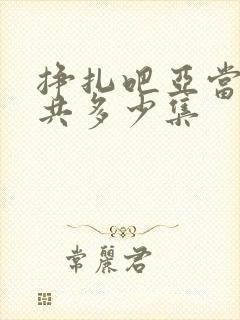 挣扎吧亞當
共多少集
常麗君